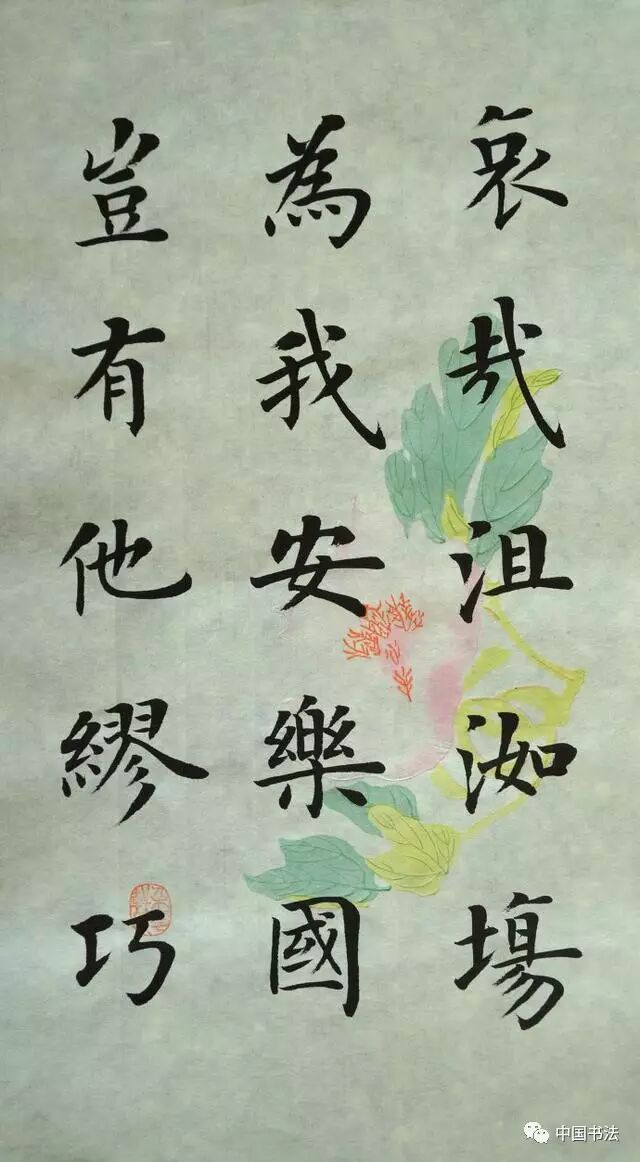 哀哉沮洳場
為我安樂國
豈有他繆巧
中国书法